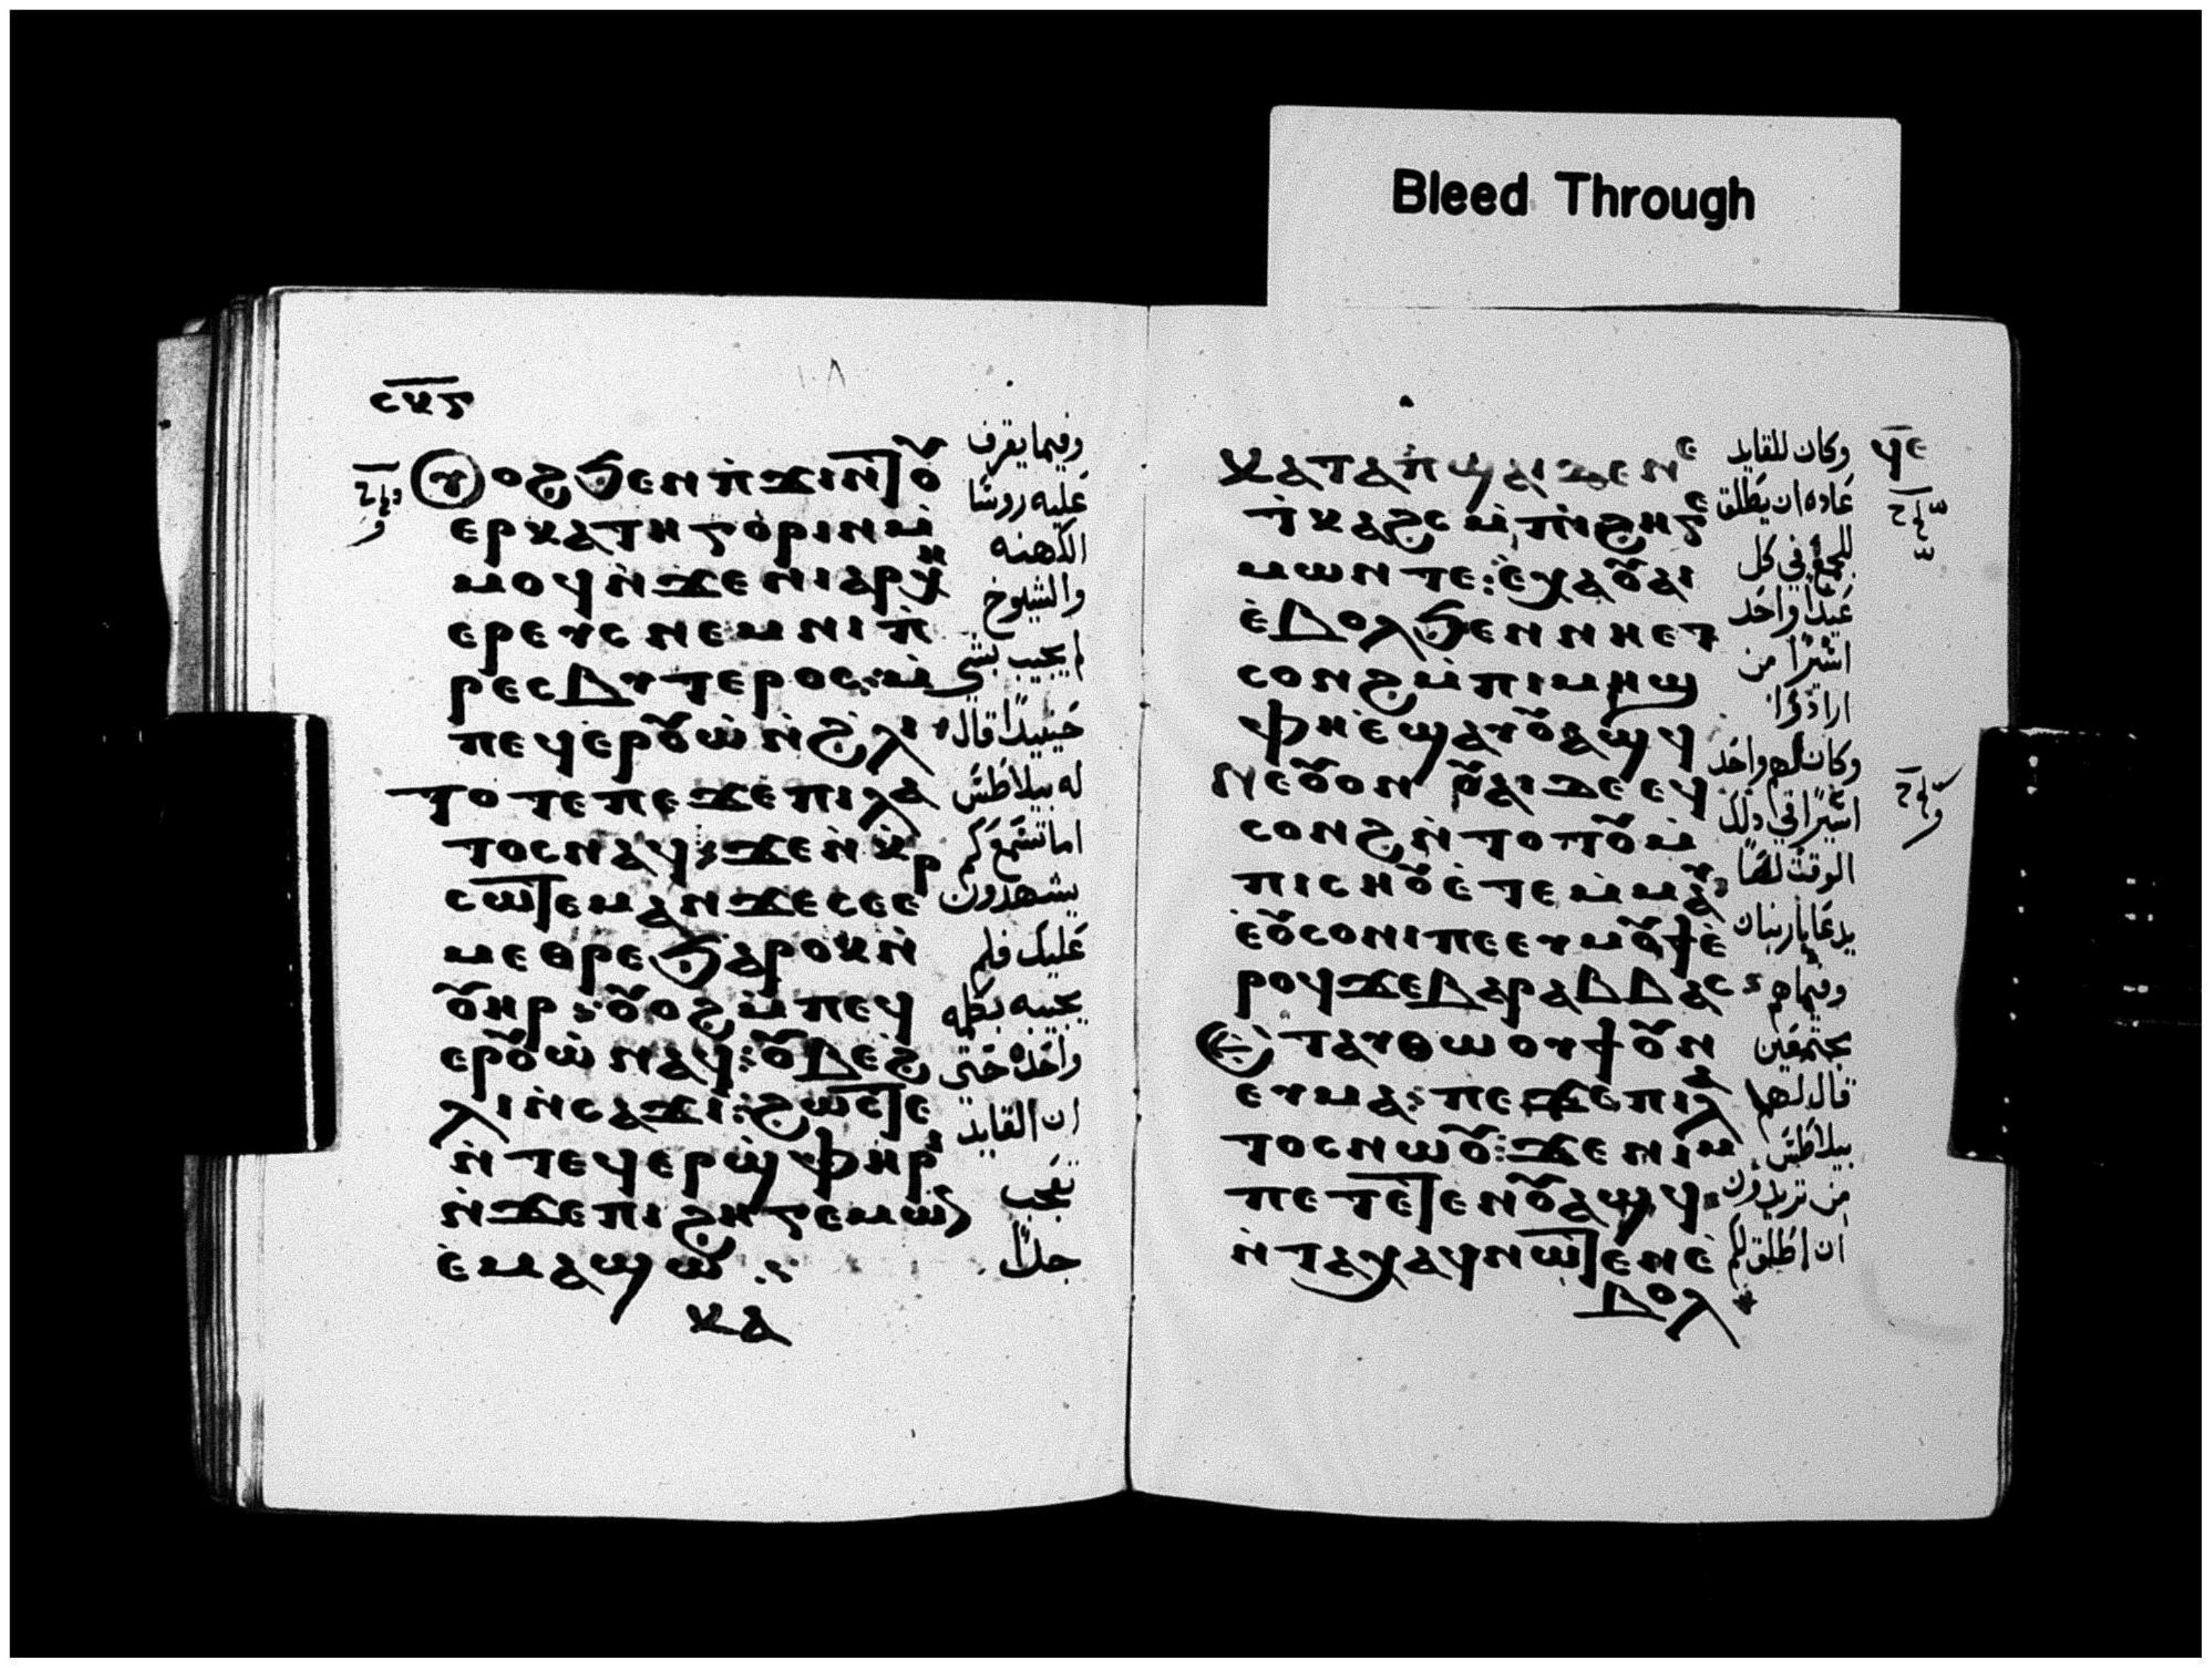 Bleed Through
ⲥⲕⲋ
١٠٨
ⲟⲩⲟϩ ϧⲉⲛ ⲡ̀ϫⲓⲛⲑⲟⲩ
ⲉⲣⲕⲁⲧⲏⲅⲟⲣⲓⲛ ⲙ̀
ⲙⲟϥ ⲛ̀ϫⲉ ⲛⲓⲁⲣⲭⲏ
ⲉⲣⲉⲩⲥ ⲛⲉⲙ ⲛⲓⲡ̀
ⲣⲉⲥⲃⲩⲧⲉⲣⲟⲥ: ⲙ̀
ⲡⲉϥⲉⲣⲟⲩⲱ̀ ⲛ̀ϩⲗⲓ
ⲧⲟⲧⲉ ⲡⲉϫⲉ ⲡⲓⲗⲁ
ⲧⲟⲥ ⲛⲁϥ: ϫⲉ ⲛ̀ⲕ̀
ⲥⲱⲧⲉⲙ ⲁⲛ ϫⲉ ⲥⲉⲉⲣ
ⲙⲉⲑⲣⲉ ϧⲁⲣⲟⲕ ⲛ̀
ⲟⲩⲏⲣ: ⲟⲩⲟϩ ⲙ̀ⲡⲉϥ
ⲉⲣⲟⲩⲱ̀ ⲛⲁϥ: ⲟⲩⲃⲉ ϩ
ⲗⲓ ⲛ̀ⲥⲁϫⲓ: ϩⲱⲥⲧⲉ
ⲛ̀ⲧⲉϥⲉⲣϣⲫⲏⲣⲓ
ⲛ̀ϫⲉ ⲡⲓϩⲏⲅⲉⲙⲱⲛ
ⲉ̀ⲙⲁϣⲱ
ⲕⲁ
وفيما يقرف
عليه روسًا
الكهنه
والشيوخ
لم يجيب بشي
حينيدًا قال
له بيلاطس
اما تسمع كم
يشهدون
عليك فلم
يجيبه بكلمه
واحده حتي
ان القايد
تعجب
جدًا
ⲕⲁⲧⲁ ⲡ̀ϣⲁⲓ ⲇⲉ ⲛⲉ
ⲧ̀ⲕⲁϩⲥ ⲙ̀ⲡⲓϩⲏⲅⲉ
ⲙⲱⲛ ⲧⲉ: ⲉ̀ⲭⲁ ⲟⲩⲁⲓ
ⲉ̀ⲃⲟⲗ ϧⲉⲛ ⲛⲏⲉⲧ
ⲥⲟⲛϩ ⲙ̀ⲡⲓⲙⲏϣ
ⲫⲏ ⲉ̀ϣⲁⲩⲟⲩⲁϣϥ
ⲛⲉ ⲟⲩⲟⲛ ⲟⲩⲁⲓ ⲇⲉ ⲉϥ
ⲥⲟⲛϩ ⲛ̀ⲧⲟⲧⲟⲩ ⲙ̀
ⲡⲓⲥⲏⲟⲩ ⲉ̀ⲧⲉⲙ̀ⲙⲁⲩ
ⲉ̀ⲟⲩⲥⲟⲛⲓ ⲡⲉ ⲉⲩⲙⲟⲩϯ ⲉ̀
ⲣⲟϥ ϫⲉ ⲃⲁⲣⲁⲃⲃⲁⲥ
ⲉⲧⲁⲩⲑⲱⲟⲩϯ ⲟⲩⲛ
ⲉⲩⲙⲁ: ⲡⲉϫⲉ ⲡⲓⲗⲁ
ⲧⲟⲥ ⲛⲱⲟⲩ: ϫⲉ ⲛⲓⲙ
ⲡⲉⲧⲉⲧⲉⲛⲟⲩⲁϣϥ
ⲛ̀ⲧⲁⲭⲁϥ ⲛⲱⲧⲉⲛ ⲉ̀
ⲃⲟⲗ
وكان للقايد
عاده ان يطلق
للجمع في كل
عيدًا واحد
اسيرًا من
ارادوا
وكان لهم واحد
اسيرًا في دلك
الوقت لصًا
يدعا باربان
وفيما هم
مجتمعين
قال لهم
بيلاطس
من تريدون
ان اطلق لكم